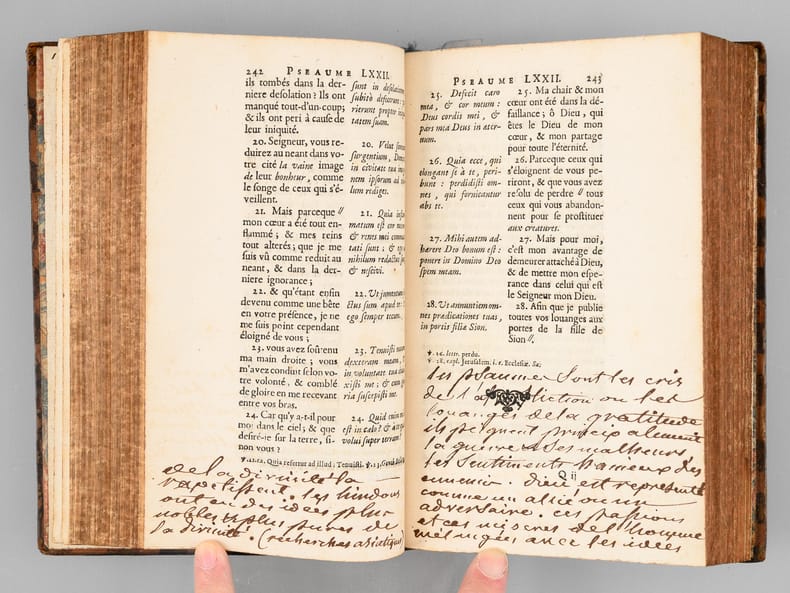 242 PSEAUME LXXII.
ils tombés dans la der-
niere desolation ? Ils ont
manqué tout-d'un-coup;
& ils ont peri à cause de
leur iniquité.
20. Seigneur, vous re-
duirez au neant dans vo-
tre cité la vaine image
de leur bonheur, comme
le songe de ceux qui s'é-
veillent.
21. Mais parceque //
mon cœur a été tout en-
flammé ; & mes reins
tout alterés; que je me
suis vû comme reduit au
neant, & dans la der-
niere ignorance ;
22. & qu'étant enfin
devenu comme une bête
en votre présence, je ne
me suis point cependant
éloigné de vous ;
23. vous avez soûtenu
ma main droite ; vous
m'avez conduit selon vo-
tre volonté, & comblé
de gloire en me recevant
entre vos bras.
24. Car qu'y a-t-il pour
moi dans le ciel; & que
desiré-je sur la terre, si-
non vous ?
sunt in
subitò
propter
tatem suam.
20. Velut
surgentium,
in civitate
nem ipsorum ad
lum rediges.
21. Quia
matum est cor
& renes mei
tati sunt : &
nihilum redactus
& nescivi.
22. Ut jumentum
ctus sum apud
ego semper tecum.
23. Tenuisti
dexteram meam,
in voluntate tua
xisti me; & cum
ria suscepisti me.
24. Quid enim
est in cœlo? & à te
volui super terram?
Quia refertur ad illud, Tenuisti.
de la divinité la
rapetissent. les hindous
ont eu des idées plus
nobles & plus pures de
la divinité. (recherches asiatiques)
PSEAUME LXXII. 243
25. Defecit caro
mea, & cor meum :
Deus cordis mei, &
pars mea Deus in æter-
num.
26. Quia ecce, qui
elongant se à te, peri-
bunt : perdidisti om-
nes, qui fornicantur
abs te.
27. Mihi autem ad-
hærere Deo bonum est :
ponere in Domino Deo
spem meam.
28. Ut annuntiem om-
nes prædicationes tuas,
in portis filiæ Sion.
25. Ma chair & mon
cœur ont été dans la dé-
faillance ; ô Dieu, qui
êtes le Dieu de mon
cœur, & mon partage
pour toute l'éternité.
26. Parceque ceux qui
s'éloignent de vous pe-
riront, & que vous avez
resolu de perdre // tous
ceux qui vous abandon-
nent pour se prostituer
aux creatures.
27. Mais pour moi,
c'est mon avantage de
demeurer attaché à Dieu,
& de mettre mon espe-
rance dans celui qui est
le Seigneur mon Dieu.
28. Afin que je publie
toutes vos louanges aux
portes de la fille de
Sion //.
℣. 26. lettr. perdu.
℣. 28. expl. Jerusalem. i. e. Ecclesiæ. Sa.
les psaumes sont les cris
de l'affliction ou les
louanges de la gratitude
ils peignent principalement
la guerre & ses malheurs
les sentiments haineux des
Q ij
ennemis. dieu est représenté
comme un allié ou un
adversaire. ces passions
et ces miseres de l'homme
mélangées avec les idées